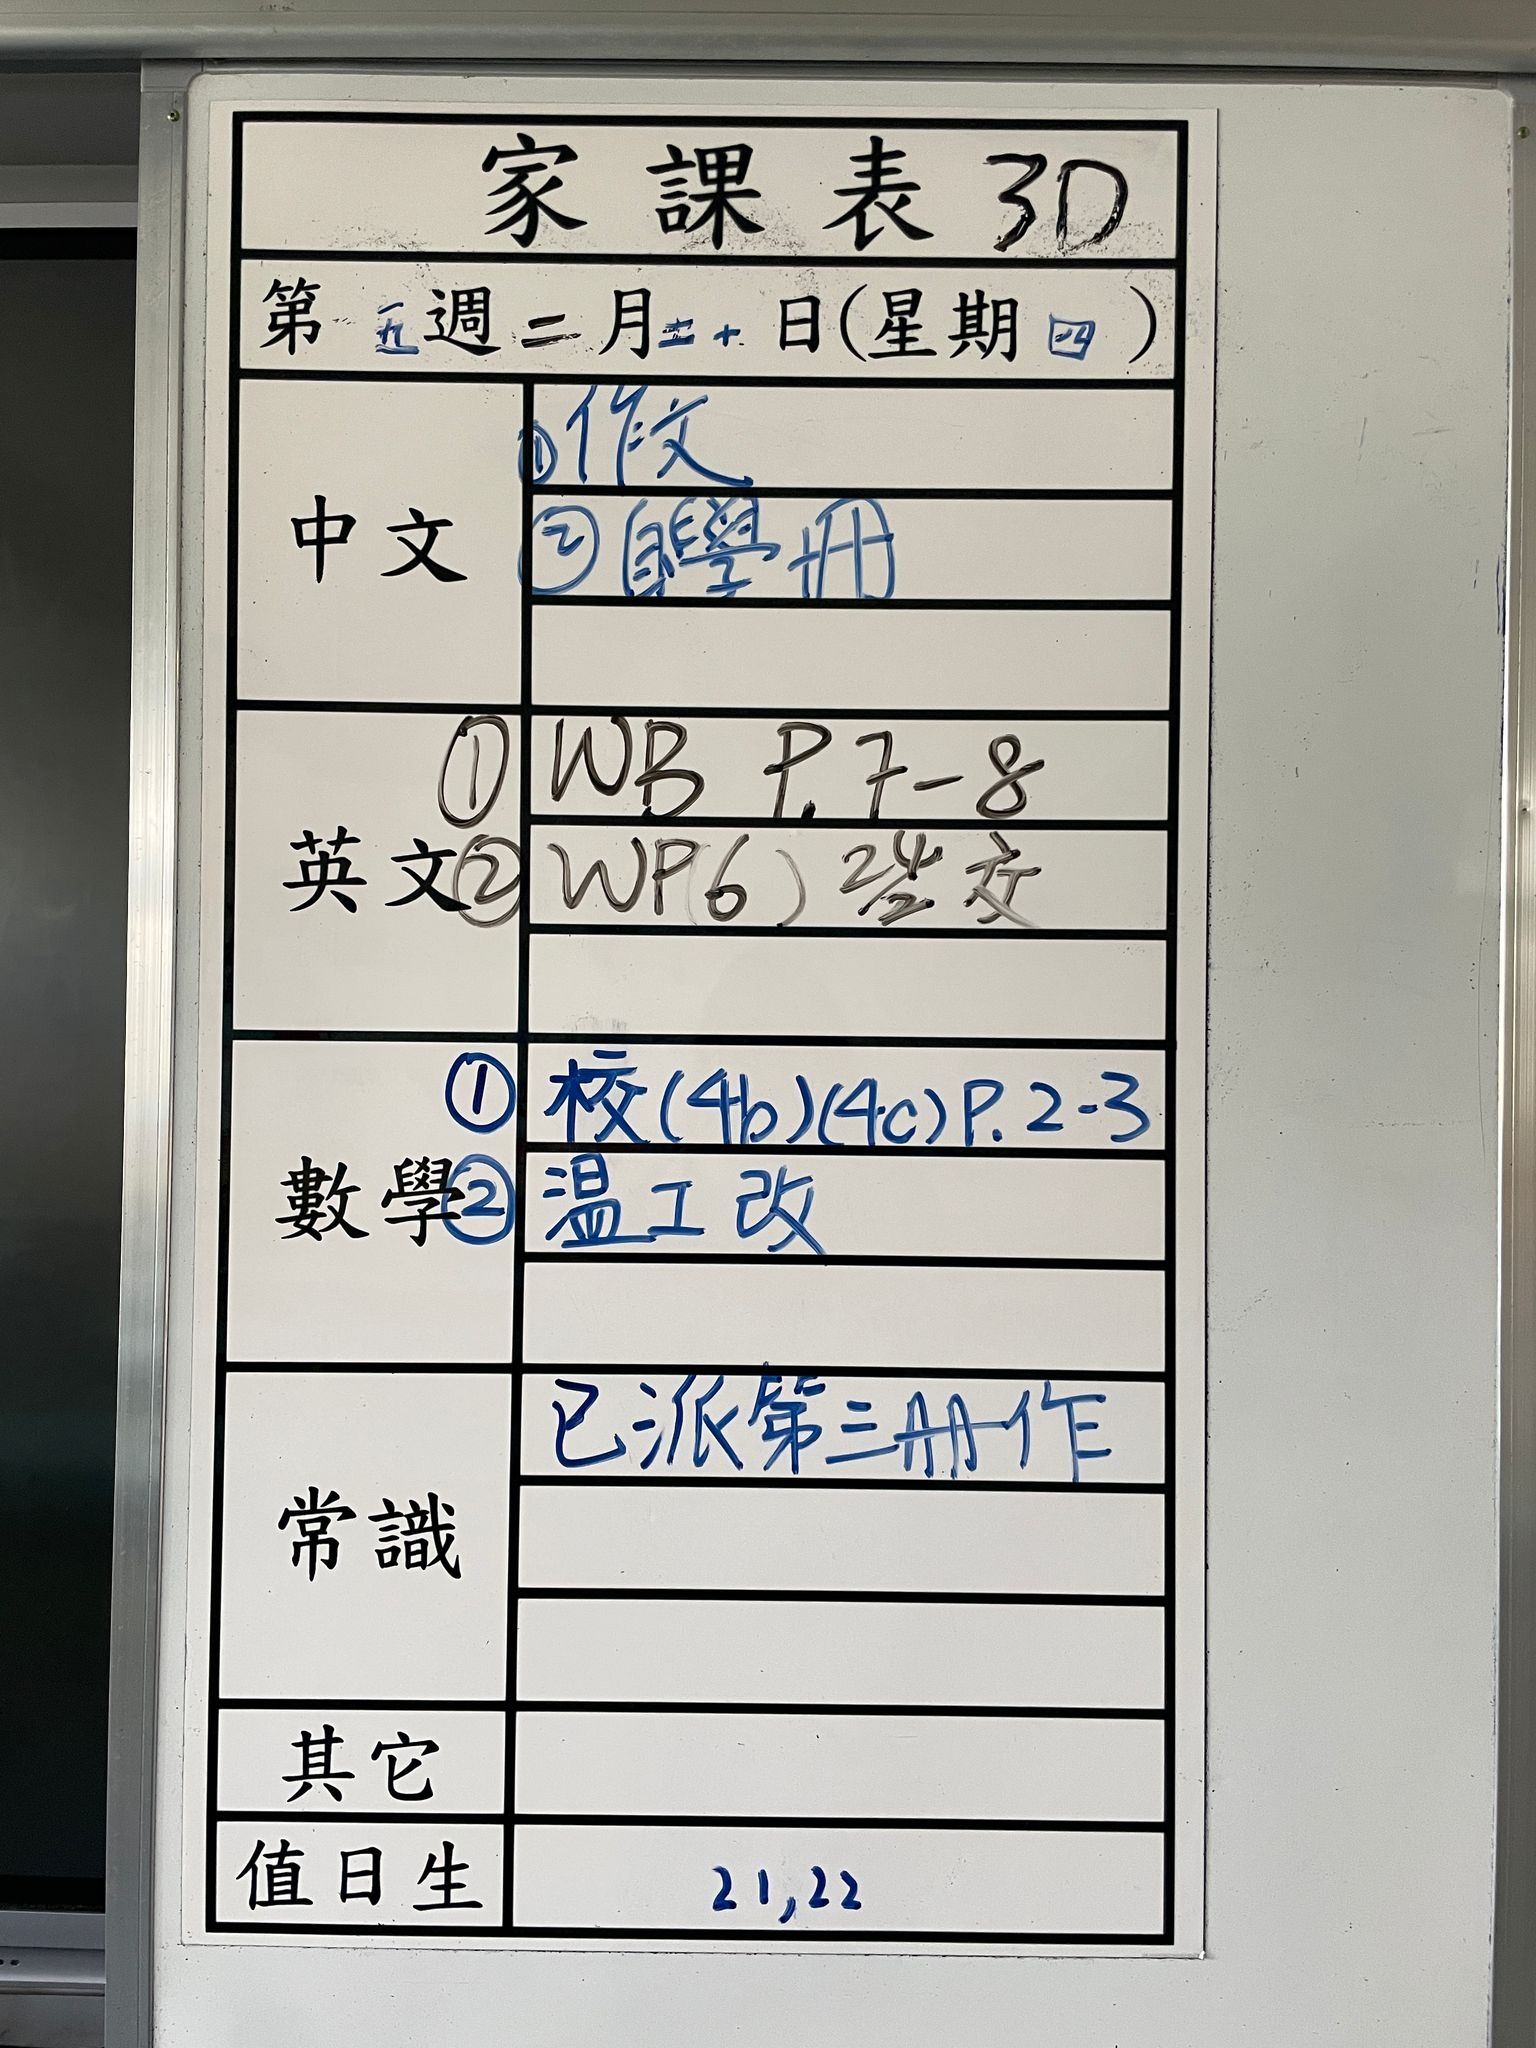 家課表 3D
第 週二月 日(星期四)
中文
①作文
②自學冊
英文
① WB P.7-8
② WP(6) 文
數學
① 校(4b)(4c)P.2-3
② 温工改
常識
已派第三冊作
其它
值日生
21,22